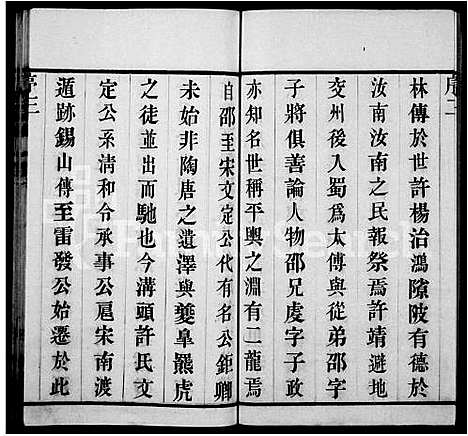 序二
林傳於世許楊治鴻隙陂有德於
汝南汝南之民報祭焉許靖避地
交州後入蜀爲太傅與從弟邵字
子將俱善論人物邵兄虔字子政
亦知名世稱平輿之淵有二龍焉
自邵至宋文定公代有名公鉅卿
未始非陶唐之遺澤與夔皐羆虎
之徒並出而馳也今溝頭許氏文
定公系淸和令承事公扈宋南渡
遁跡錫山傳至雷發公始遷於此
序三